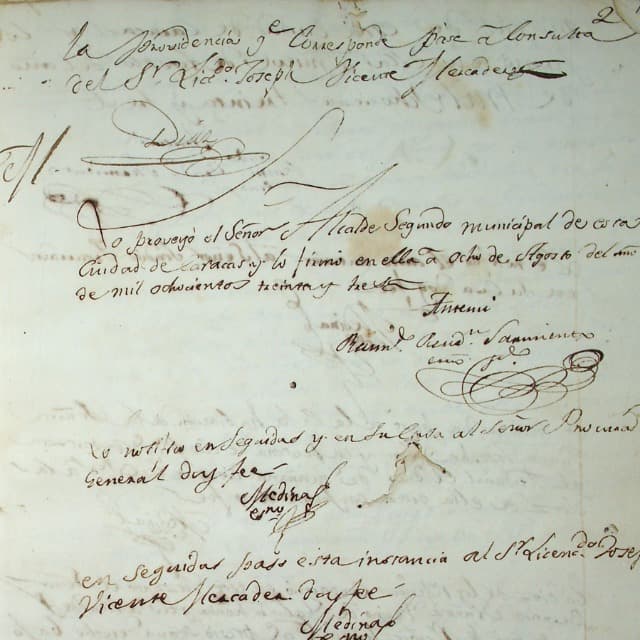 2
la providencia q.e corresponde pase à consulta
del S.r Lic.do Joseph Vicente Mercader
Lo proveyó el Señor Alcalde Segundo municipal de esta
Ciudad de Caracas y lo firmó en ella à ocho de Agosto del año
de mil ochocientos treinta y tres
Antemi
Sarmiento
Lo notifiq en seguidas y en su Casa al Señor Procurad
General doy fee
Medina
esno
en seguidas pasò esta instancia al S.r Licen.do Josef
Vicente Mercader doy fee
Medina
esno